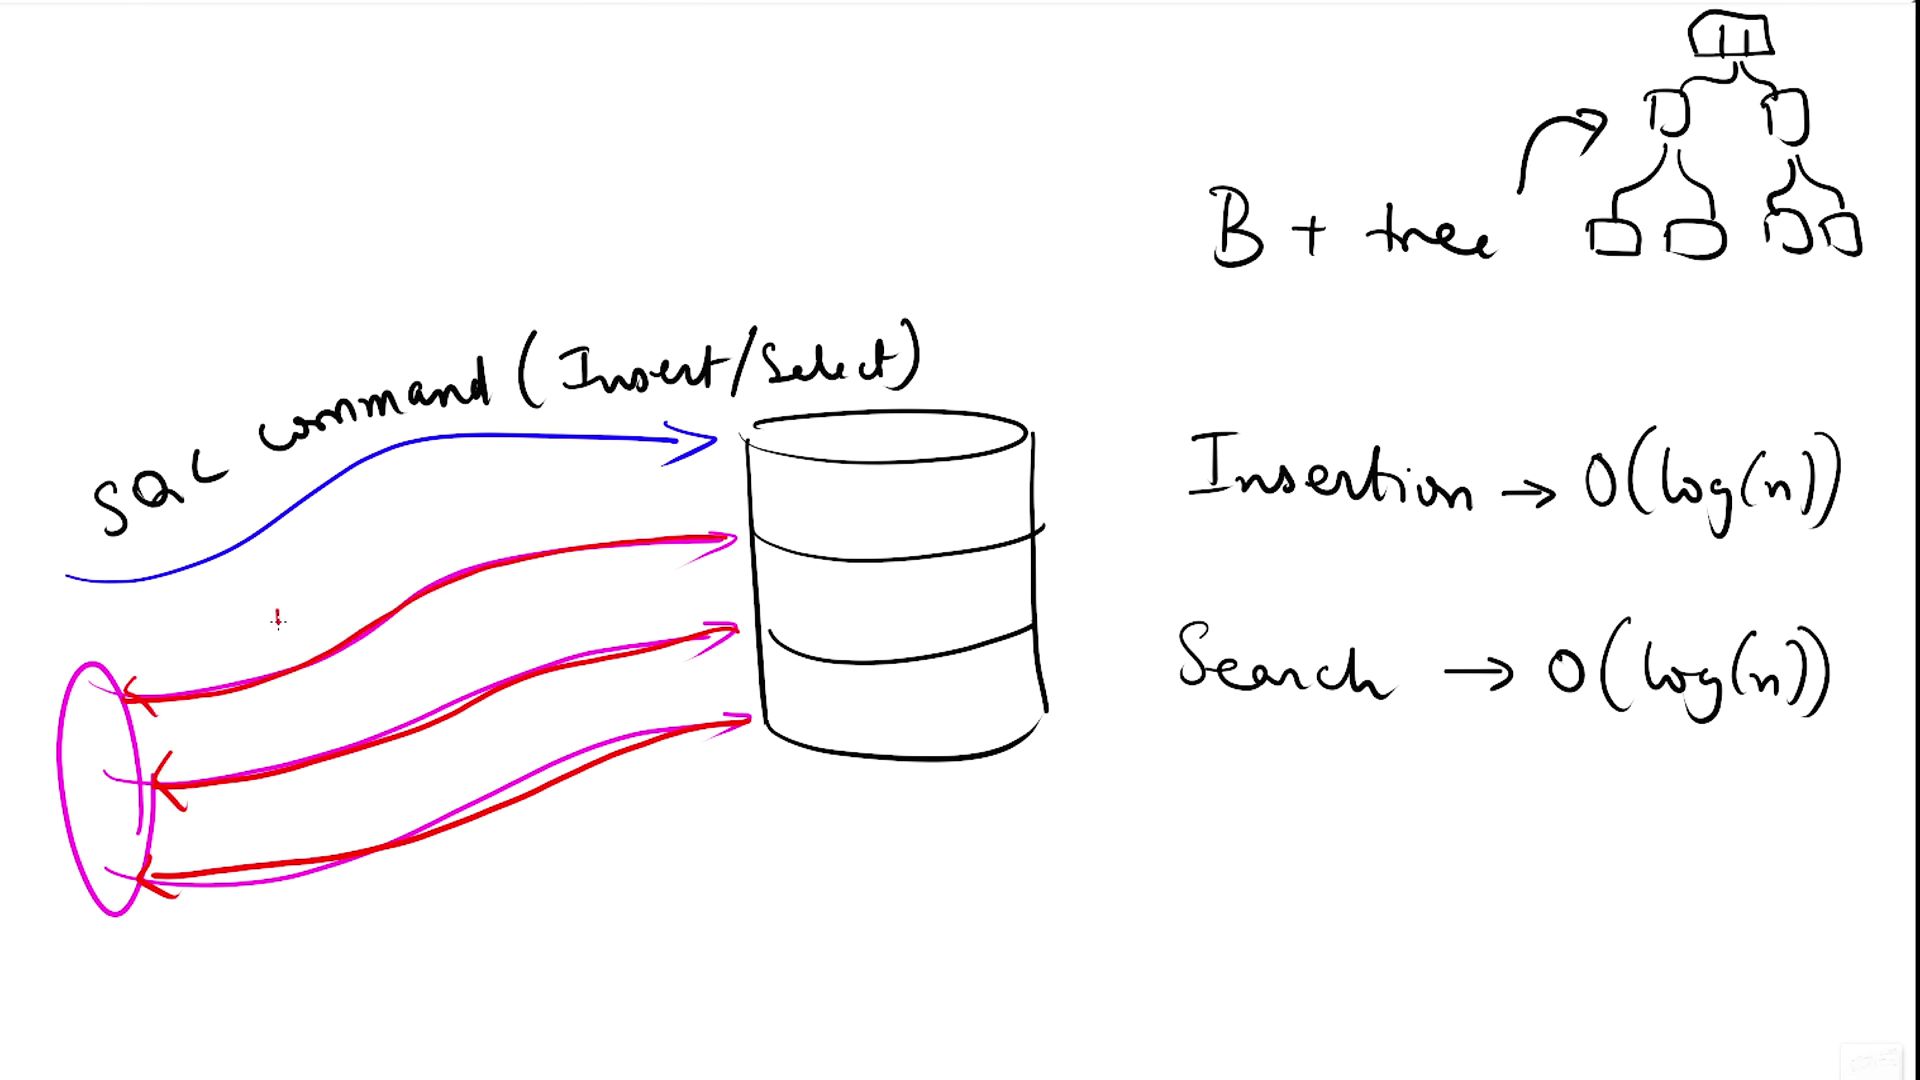 B + tree
SQL command (Insert/Select)
Insertion → O(log(n))
Search → O(log(n))